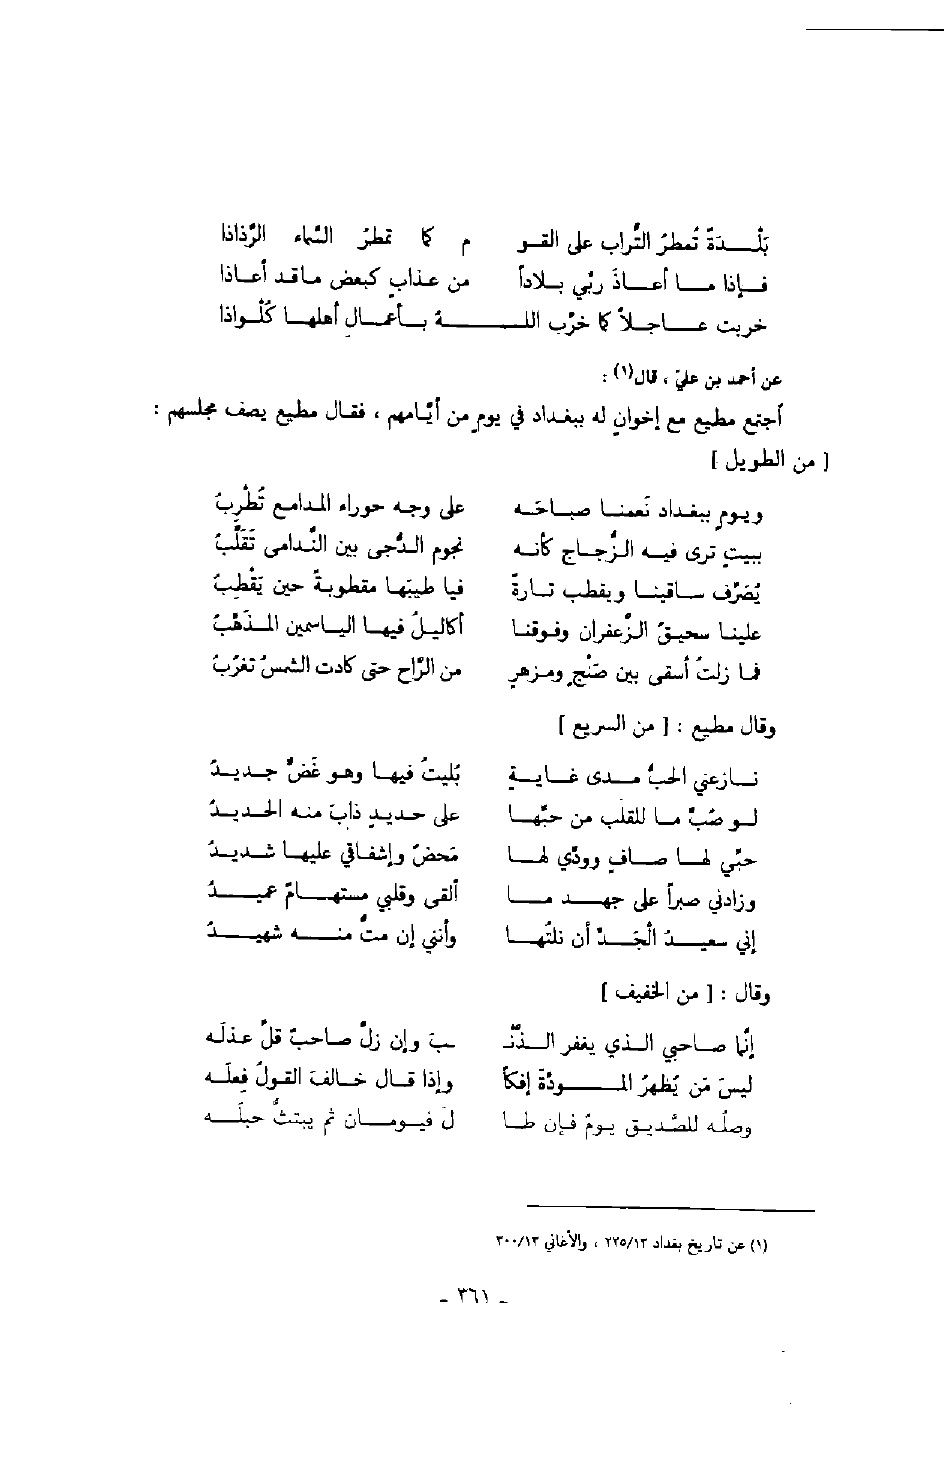 بَلْـدةٌ تُمطرُ التُّرابَ على القـو    م   كما   تمطرُ   السَّماء   الرَّذاذا
فـإذا مـا أعـاذَ ربّي بـلاداً    من عذابٍ كبعض ماقد أعـاذا
خربت عـاجـلاً كما خرَّب اللـه بـأعمـالِ أهلهـا كَلْـواذا
عن أحمد بن عليّ ، قال(١) :
أجتمع مطيع مع إخوانٍ له ببغداد في يومٍ من أيّامهم ، فقال مطيع يصف مجلسهم :
[ من الطويل ]
ويـومٍ ببغداد نَعمنـا صبـاحَـه    على وجـه حوراء المدامـع تُطْرِبُ
ببيتٍ ترى فيـه الزُّجـاج كأنـه    نجوم الدُّجى بين النَّدامى تَقَلَّبُ
يُصَرِّف سـاقينـا ويقطب تـارةً    فيا طيبَهـا مقطوبـةً حين يَقْطِبُ
علينـا سحيقُ الزَّعفران وفـوقنـا    أكاليلُ فيهـا اليـاسمين المُـذَهَّبُ
فما زلتُ أسقى بين صَنْجٍ ومـزهرٍ    من الرَّاح حتى كادت الشمسُ تغرُبُ
وقال مطيع : [ من السريع ]
نـازعني الحبُّ مـدى غـايـةٍ    بُليتُ فيهـا وهـو غَضٌّ جـديـدُ
لـو صُبَّ مـا للقلب من حبّهـا    على حـديـدٍ ذابَ منـه الحـديـدُ
حبّي لهـا صـافٍ وودّي لهـا    مَحضٌ وإشفـاقي عليهـا شـديـدُ
وزادني صبراً على جهـد مـا    ألقى وقلبي مستهـامٌ عميـدُ
إني سعيـدُ الجَـدِّ أن نلتُهـا    وأنني إن متُّ منـه شهيـدُ
وقال : [ من الخفيف ]
إنّما صـاحبي الـذي يغفر الـذّنـ    ـب وإن زلَّ صـاحبٌ قلَّ عذلَـه
ليسَ مَن يُظهرُ المـودّةَ إفكاً    وإذا قـال خـالفَ القولُ فِعلَـه
وصلُـه للصَّديق يـومٌ فـإن طـا    لَ فيـومـان ثم يبتثُّ حبلَـه
(١) عن تاريخ بغداد ٢٢٥/١٣ ، والأغاني ٣٠٠/١٣
ـ ٣٦١ ـ